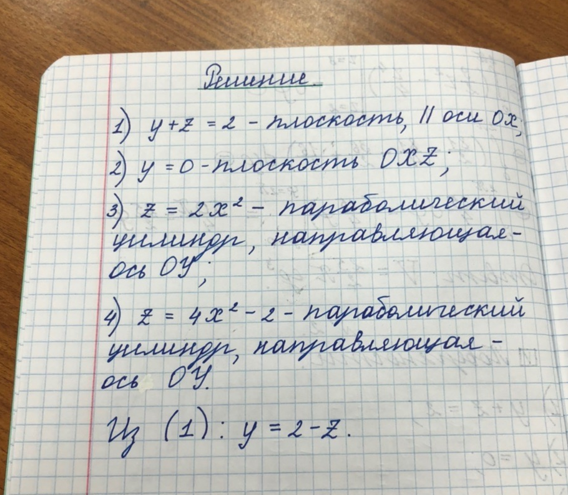 Решение
1) y+z = 2 - плоскость, || оси OX;
2) y = 0 - плоскость OXZ;
3) z = 2x² - параболический
цилиндр, направляющая-
ось OY;
4) z = 4x² - 2 - параболический
цилиндр, направляющая -
ось OY.
Из (1): y = 2-z.